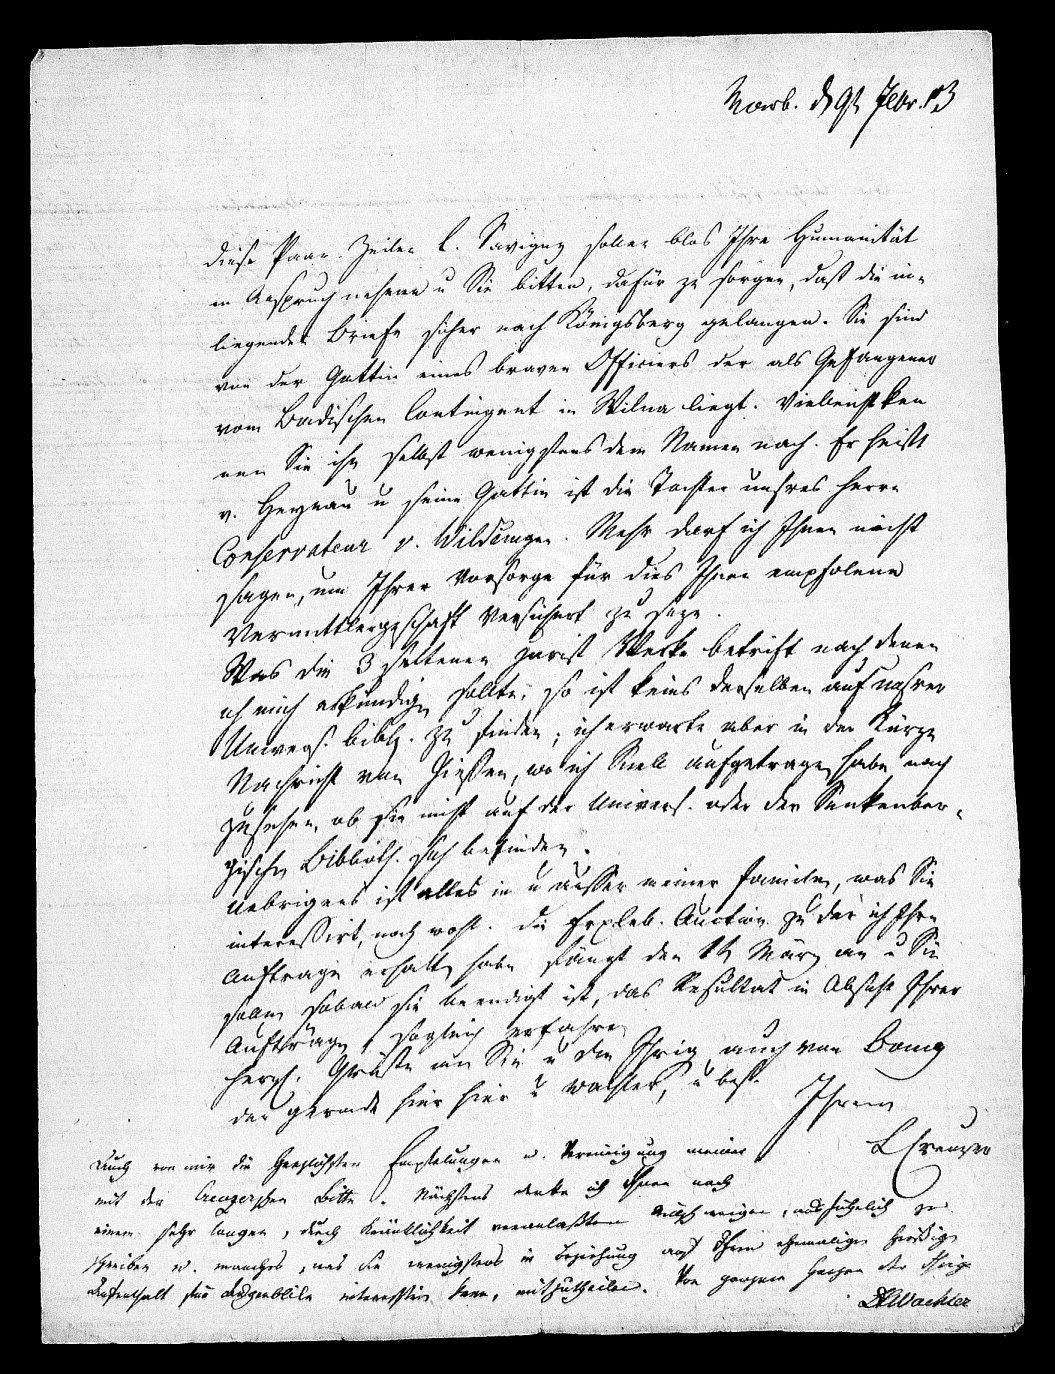 Marb. d 9t Febr. 13
Diese Paar Zeilen l. Savigny sollen blos Ihre Humanität
in Anspruch nehmen u Sie bitten, dafür zu sorgen, daß die in-
liegenden Briefe sicher nach Königsberg gelangen. Sie sind
von der Gattin eines braven Officiers der als Gefangener
vom Badischen Contingent in Wilna liegt. Vielleicht ken
nen Sie ihn selbst wenigstens dem Namen nach. Er heist
v. Heynau u seine Gattin ist die Tochter unsres Herrn
Conservateur v. Wildungen. Mehr darf ich Ihnen nicht
sagen, um Ihrer Vorsorge für dies Ihnen empfolene
Vermittlergeschäft versichert zu seyn.
Was die 3 seltenen jurist Werke betrift nach denen
ich mich erkundigen sollte; so ist keins derselben auf unsrer
Univers. bibl. zu finden; ich erwarte aber in der Kürze
Nachricht von Gießen, wo ich Snell aufgetragen habe nach
zusehen, ob sie nicht auf der Univers. oder der Senkenber-
gischen Biblioth. sich befinden.
Uebrigens ist alles in u ausser meiner Familie, was Sie
interessirt, noch wohl. Die Erxleb. Auction zu der ich Ihre
Aufträge erhalten habe fängt den 1t März an u Sie
sollen sobald sie beendigt ist, das Resultat in Absicht Ihrer
Aufträge, sogleich erfahren
Herzl. Grüße an Sie u die Ihrigen auch von
der gerade hier hier u Wachler, u best.
Ihrem
L Creuzer
Auch von mir die herzlichsten Empfelungen u. Vereinigung meiner
mit der Creuzerschen Bitte. Nächstens denke ich Ihnen nach
einem sehr langen, durch Kränklichkeit veranlaßten Stillschweigen, ausführlich zu
schreiben u. manches, was Sie wenigstens in Beziehung auf Ihren ehemaligen hiesigen
Aufenthalt für Augenblicke interessiren kann, mitzutheilen. Von ganzem Herzen der Ihrige
DLWachler